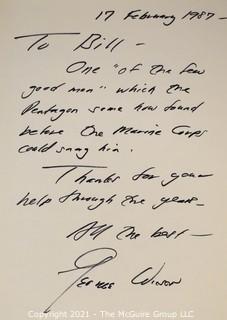 17 February 1987 -
To Bill -
One "of the few
good men" which the
Pentagon some how found
before the Marine Corps
could snag him.
Thanks for your
help through the years -
All the best -
George Wilson
Copyright 2021 - The McGuire Group LLC